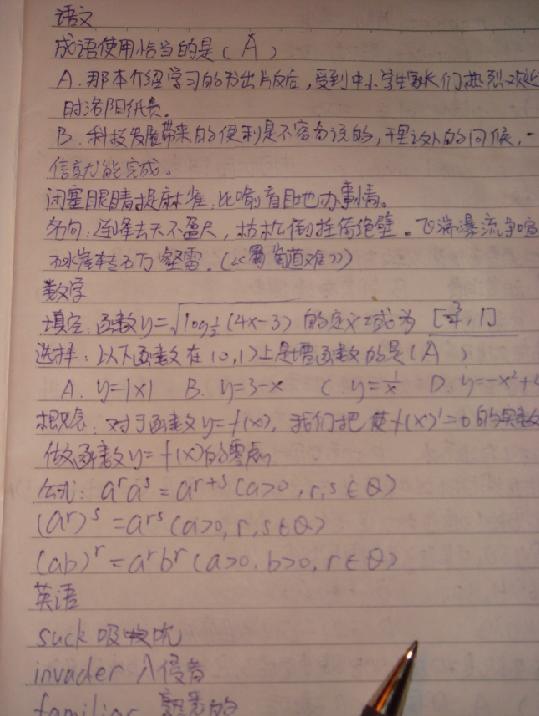 语文
成语使用恰当的是（A）
A.那本介绍学习的书出片反后，受到中小学生家长们热烈欢迎
时洛阳纸贵。
B.科技发展带来的便利是不容否认的，千里之外的问候，一
信就能完成。
闭塞眼睛捉麻雀：比喻盲目地办事情。
名句：连峰去天不盈尺，枯松倒挂倚绝壁。飞湍瀑流争喧
砯崖转石万壑雷.（《蜀道难》）
数学
填空：函数y=√log½(4x-3) 的定义域为 [¾,1]
选择：以下函数在(0,1)上是增函数的是（A）
A. y=|x| B. y=3-x C. y=1/x D. y=-x²+4
概念：对于函数y=f(x)，我们把使f(x)=0的实数
做函数y=f(x)的零点
公式：aʳaˢ=aʳ⁺ˢ(a>0,r,s∈Q)
(aʳ)ˢ=aʳˢ(a>0,r,s∈Q)
(ab)ʳ=aʳbʳ(a>0,b>0,r∈Q)
英语
suck 吸吮
invader 入侵者
familiar 熟悉的